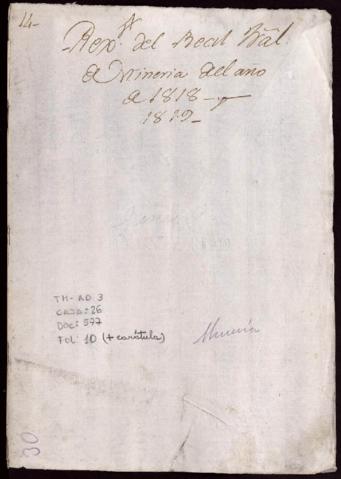 14-
Rexº. del Real Tral.
de Mineria del ano
de 1818 y
1819-
TH-AD 3
CAJA: 26
DOC: 577
FOL: 10 (+ carátula)
Minería
30